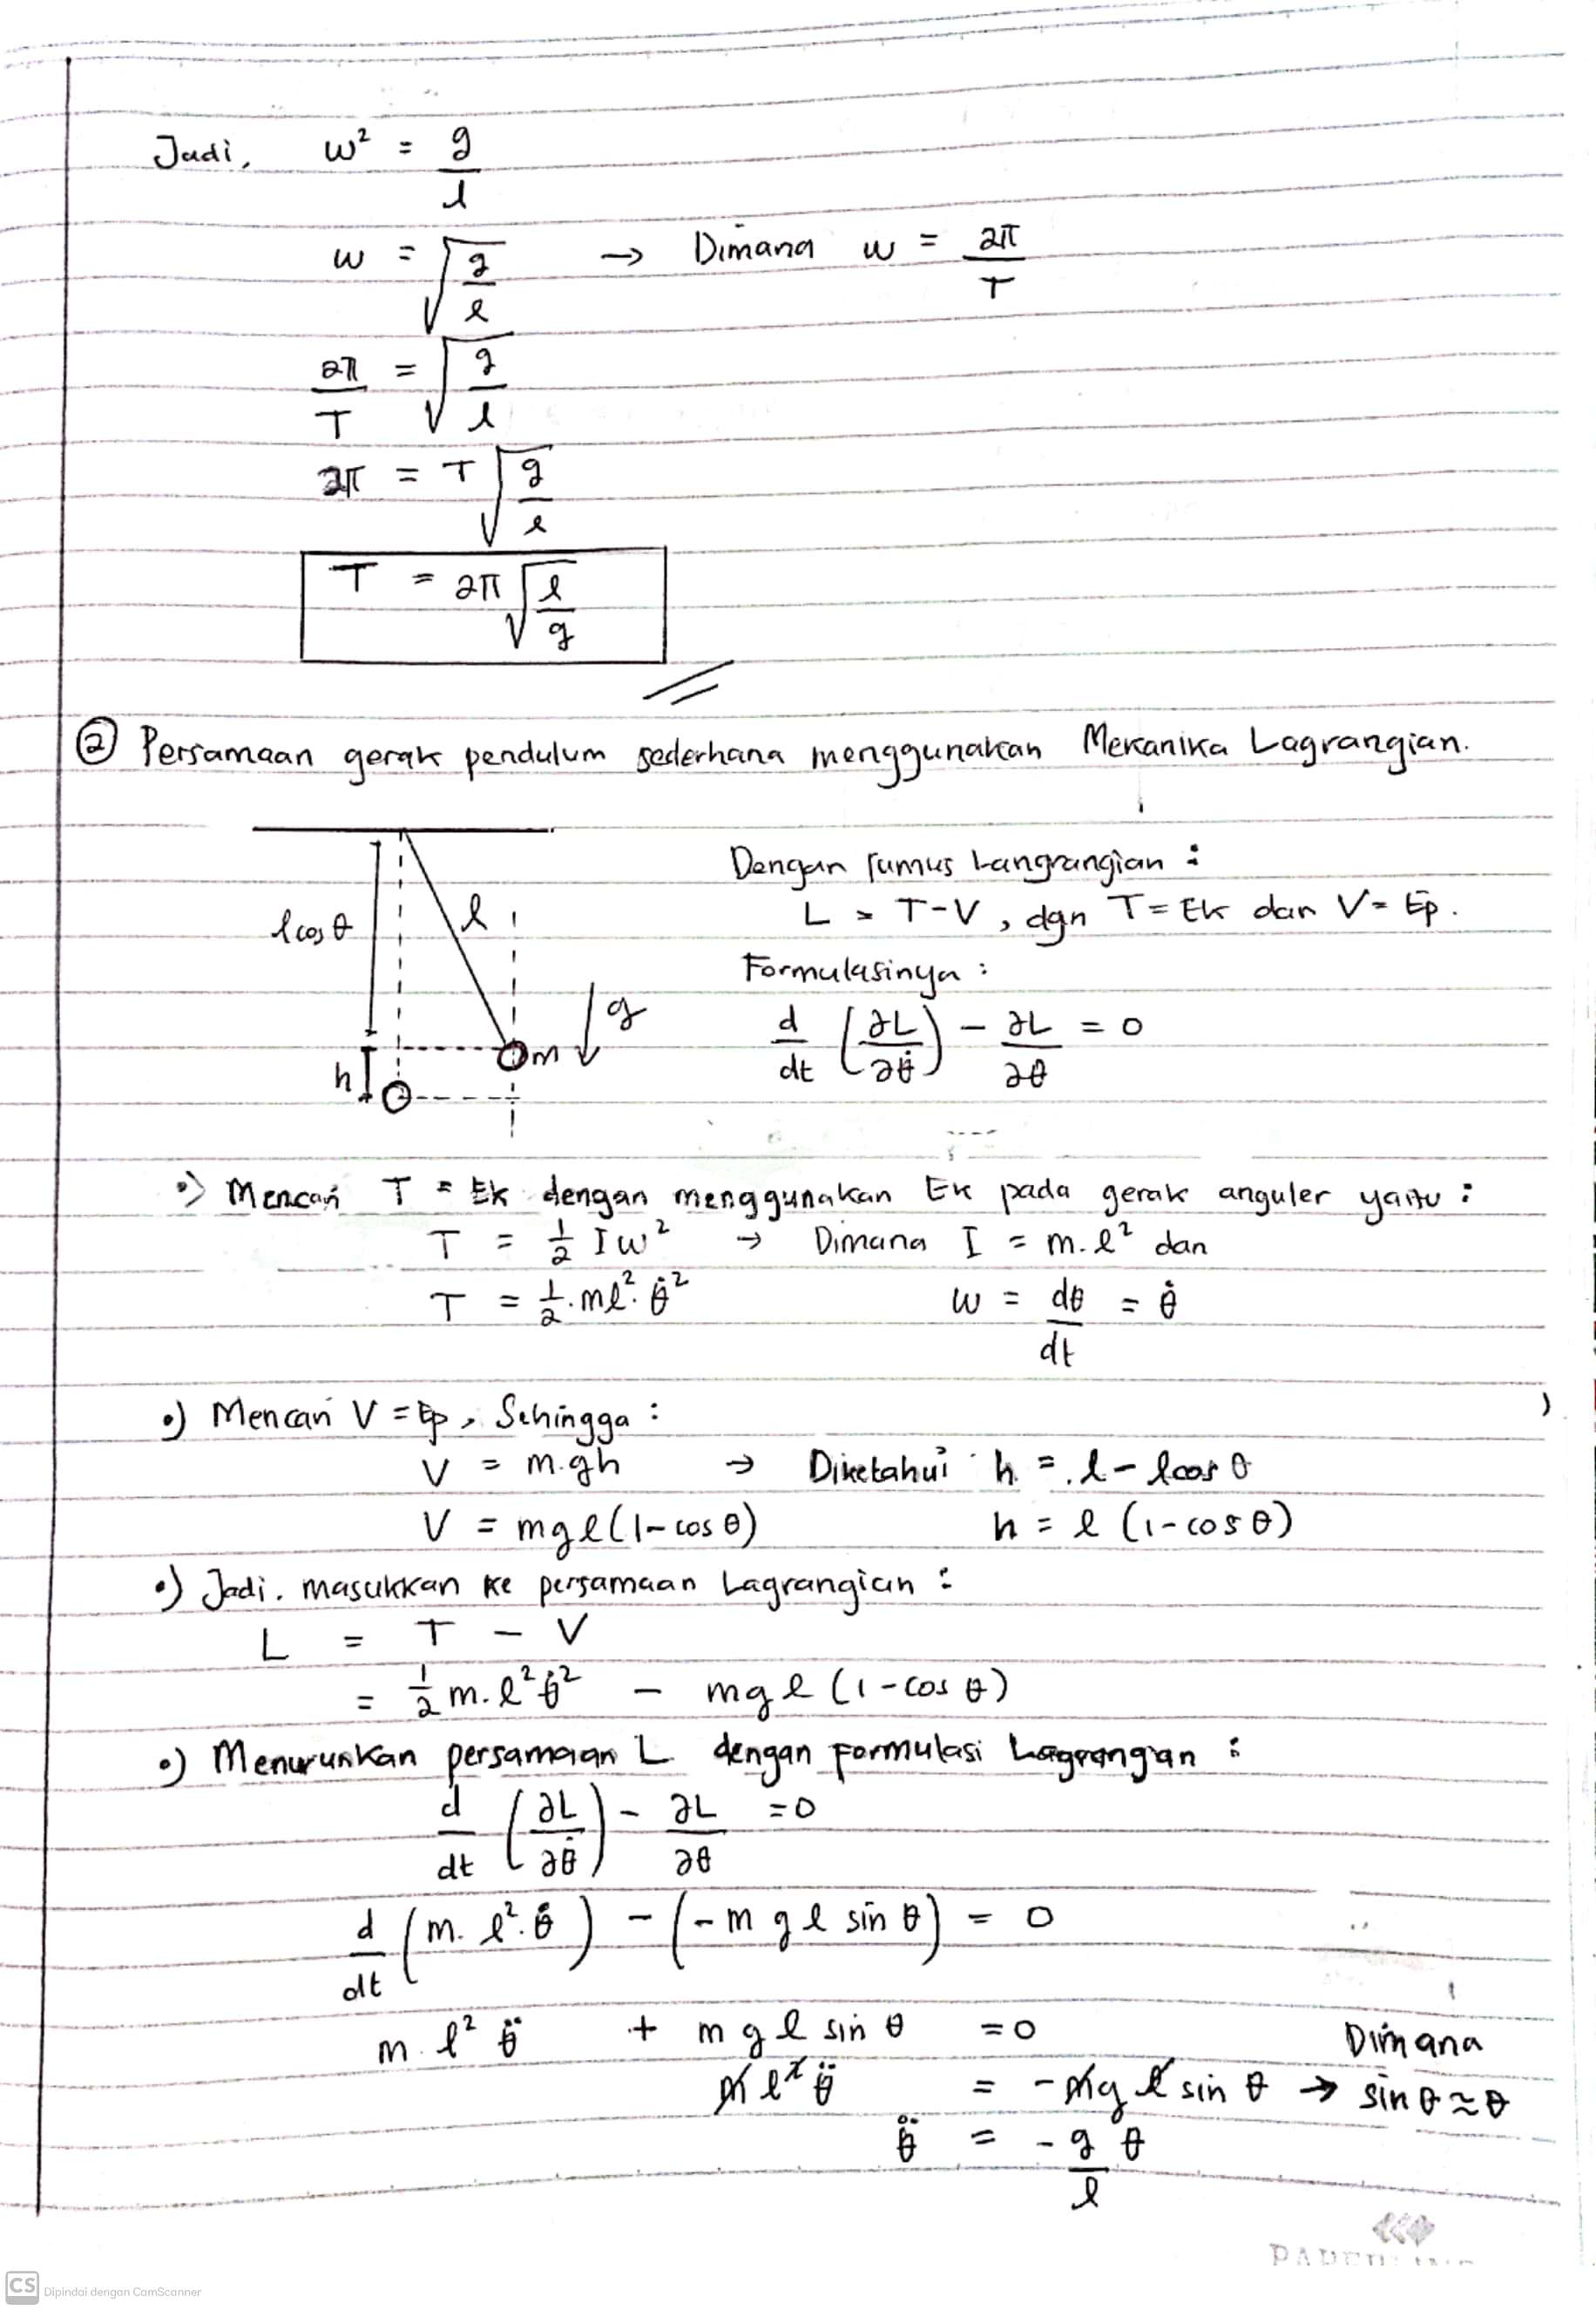 Jadi, w² = g/l
w = √(g/l) → Dimana w = 2π/T
2π/T = √(g/l)
2π = T √(g/l)
T = 2π √(l/g)
② Persamaan gerak pendulum sederhana menggunakan Mekanika Lagrangian.
l cos θ
l
g
m
h
Dengan rumus Langrangian :
L = T - V , dgn T = Ek dan V = Ep.
Formulasinya :
d/dt (∂L/∂θ̇) - ∂L/∂θ = 0
•) Mencari T = Ek dengan menggunakan Ek pada gerak anguler yaitu :
T = 1/2 I w² → Dimana I = m. l² dan
T = 1/2 . ml². θ̇² w = dθ/dt = θ̇
•) Mencari V = Ep, Sehingga :
V = m.gh → Diketahui h = l - l cos θ
V = mgl(1 - cos θ) h = l (1 - cos θ)
•) Jadi, masukkan ke persamaan Lagrangian :
L = T - V
= 1/2 m. l² θ̇² - mgl (1 - cos θ)
•) Menurunkan persamaan L dengan formulasi Lagrangian :
d/dt (∂L/∂θ̇) - ∂L/∂θ = 0
d/dt (m. l². θ̇) - (- m g l sin θ) = 0
m. l² θ̈ + m g l sin θ = 0 Dimana
m l² θ̈ = - m g l sin θ → sin θ ≈ θ
θ̈ = - g/l θ
CS Dipindai dengan CamScanner